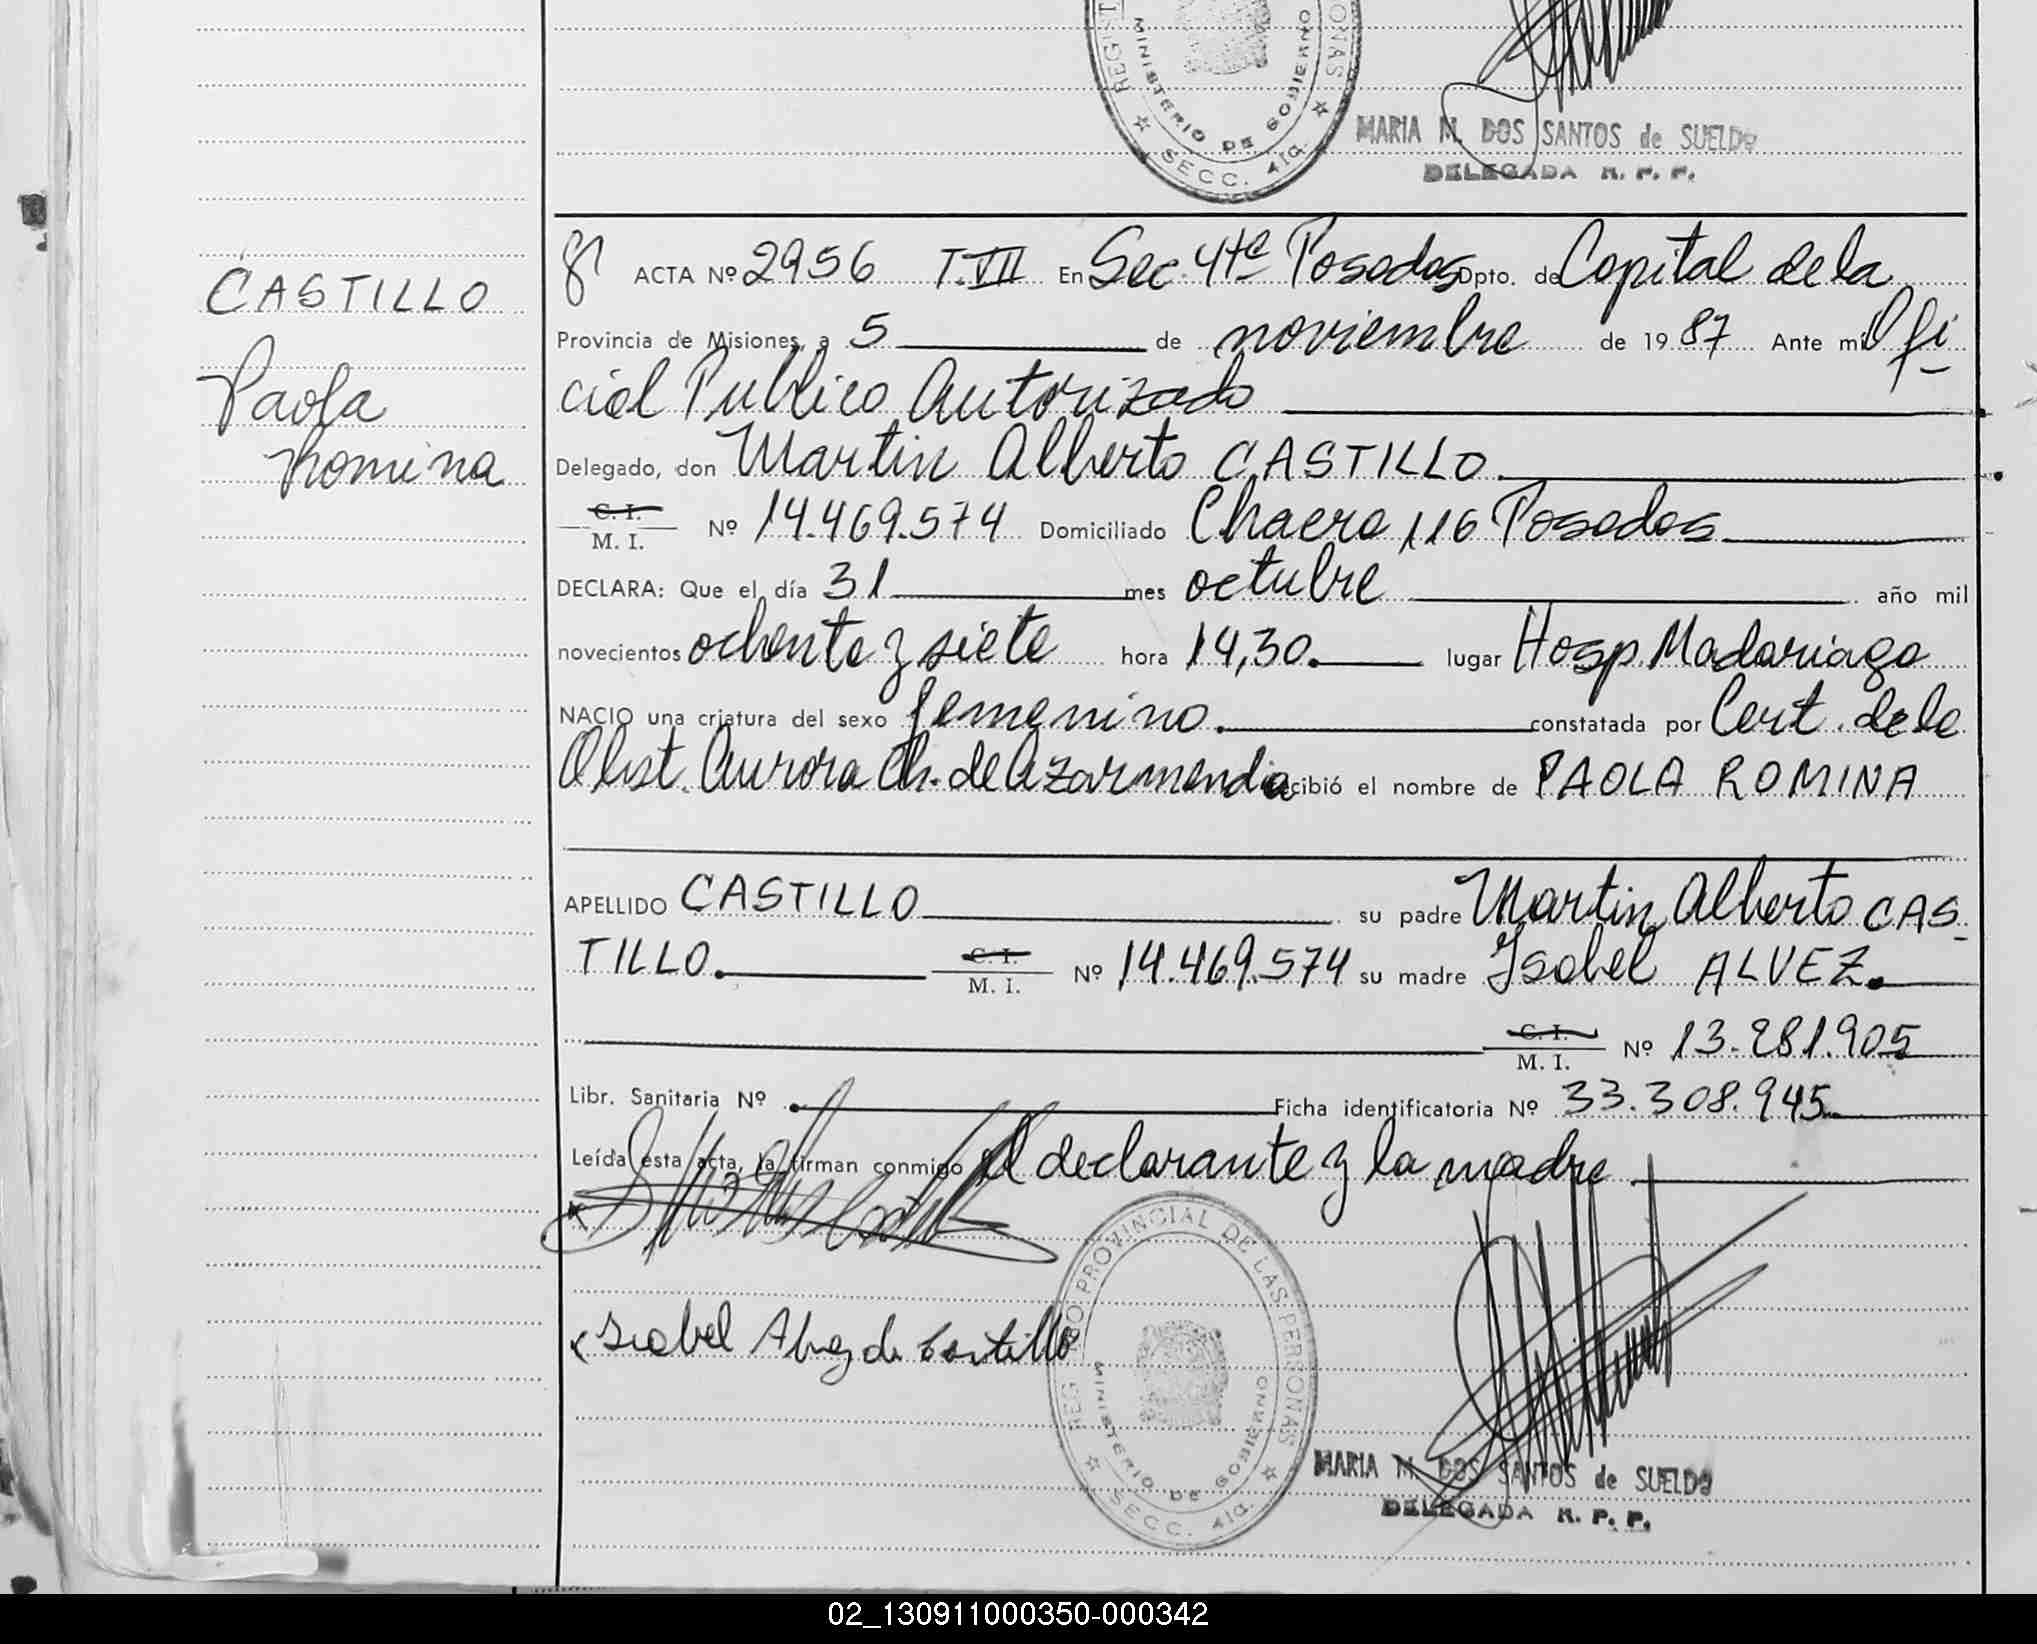 REGIST ONAS
MINISTERIO DE GOBIERNO
SECC. 4ta
MARIA M. DOS SANTOS de SUELDO
DELEGADA R. P. P.
CASTILLO
Paola
Romina
ACTA Nº 2956 T. VII En Sec. 4ta Posadas Dpto. de Capital de la
Provincia de Misiones, a 5 de noviembre de 1987 Ante mi Ofi
cial Publico Autorizado
Delegado, don Martin Alberto CASTILLO
C. I.
M. I. Nº 14.469.574 Domiciliado Chacra 116 Posadas
DECLARA: Que el día 31 mes octubre año mil
novecientos ochenta y siete hora 14,30. lugar Hosp. Madariaga
NACIO una criatura del sexo femenino. constatada por Cert. de la
Obst. Aurora Ch. de Azarmendia cibió el nombre de PAOLA ROMINA
APELLIDO CASTILLO su padre Martin Alberto CAS_
TILLO. C. I.
M. I. Nº 14.469.574 su madre Isabel ALVEZ.
C. I.
M. I. Nº 13.281.905
Libr. Sanitaria Nº Ficha identificatoria Nº 33.308.945
Leída esta acta, la firman conmigo el declarante y la madre
x Isabel Alvez de Castillo
REGISTRO PROVINCIAL DE LAS PERSONAS
MINISTERIO DE GOBIERNO
SECC. 4ta.
MARIA M. DOS SANTOS de SUELDO
DELEGADA R. P. P.
02_130911000350-000342